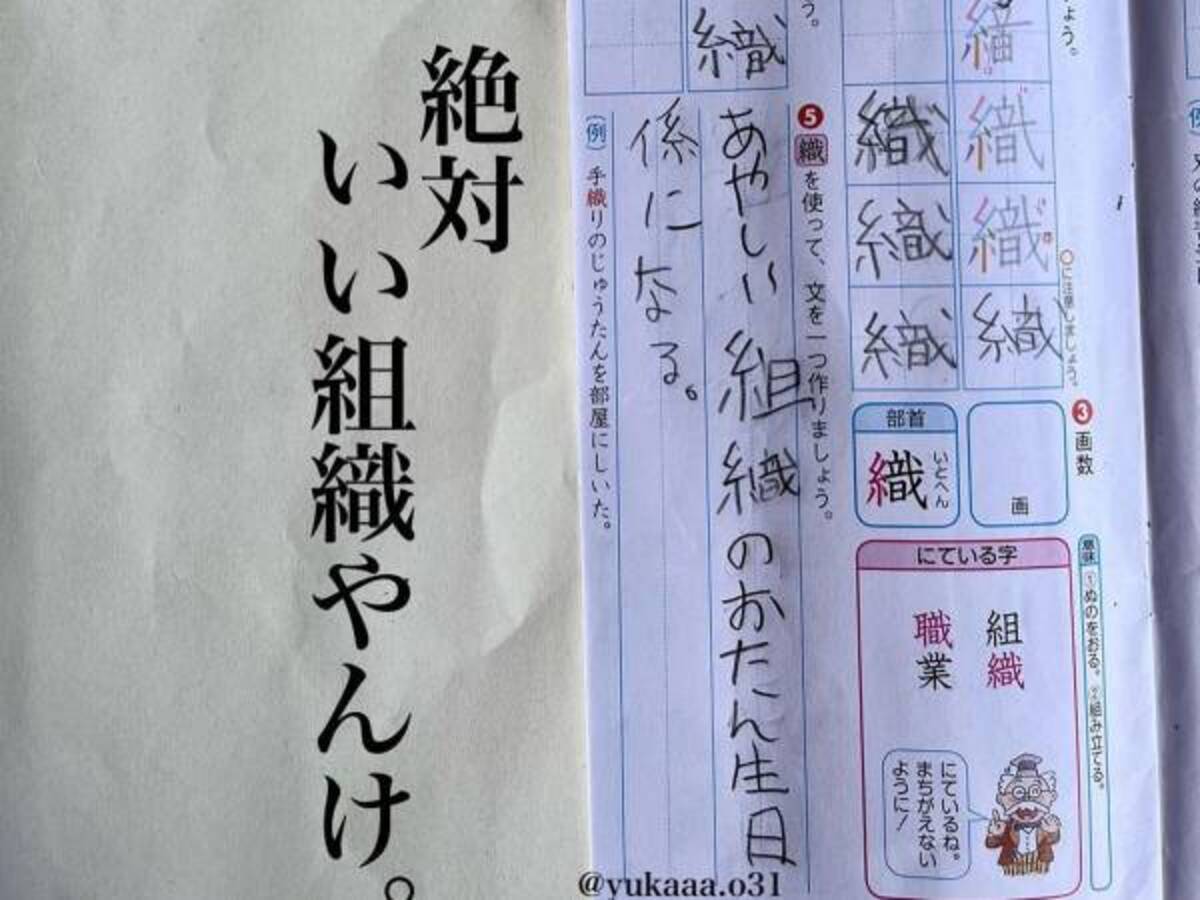 絶対
いい組織やんけ。
ょう。
織
織
織
織
〇に注意しましょう。
織
織
織
う。
織
❺織を使って、文を一つ作りましょう。
あやしい組織のおたん生日
係になる。
(例)手織りのじゅうたんを部屋にしいた。
❸画数
画
部首
織
いとへん
意味 ①ぬのをおる。②組み立てる。
にている字
組織
職業
にているね。
まちがえない
ように!
@yukaaa.o31